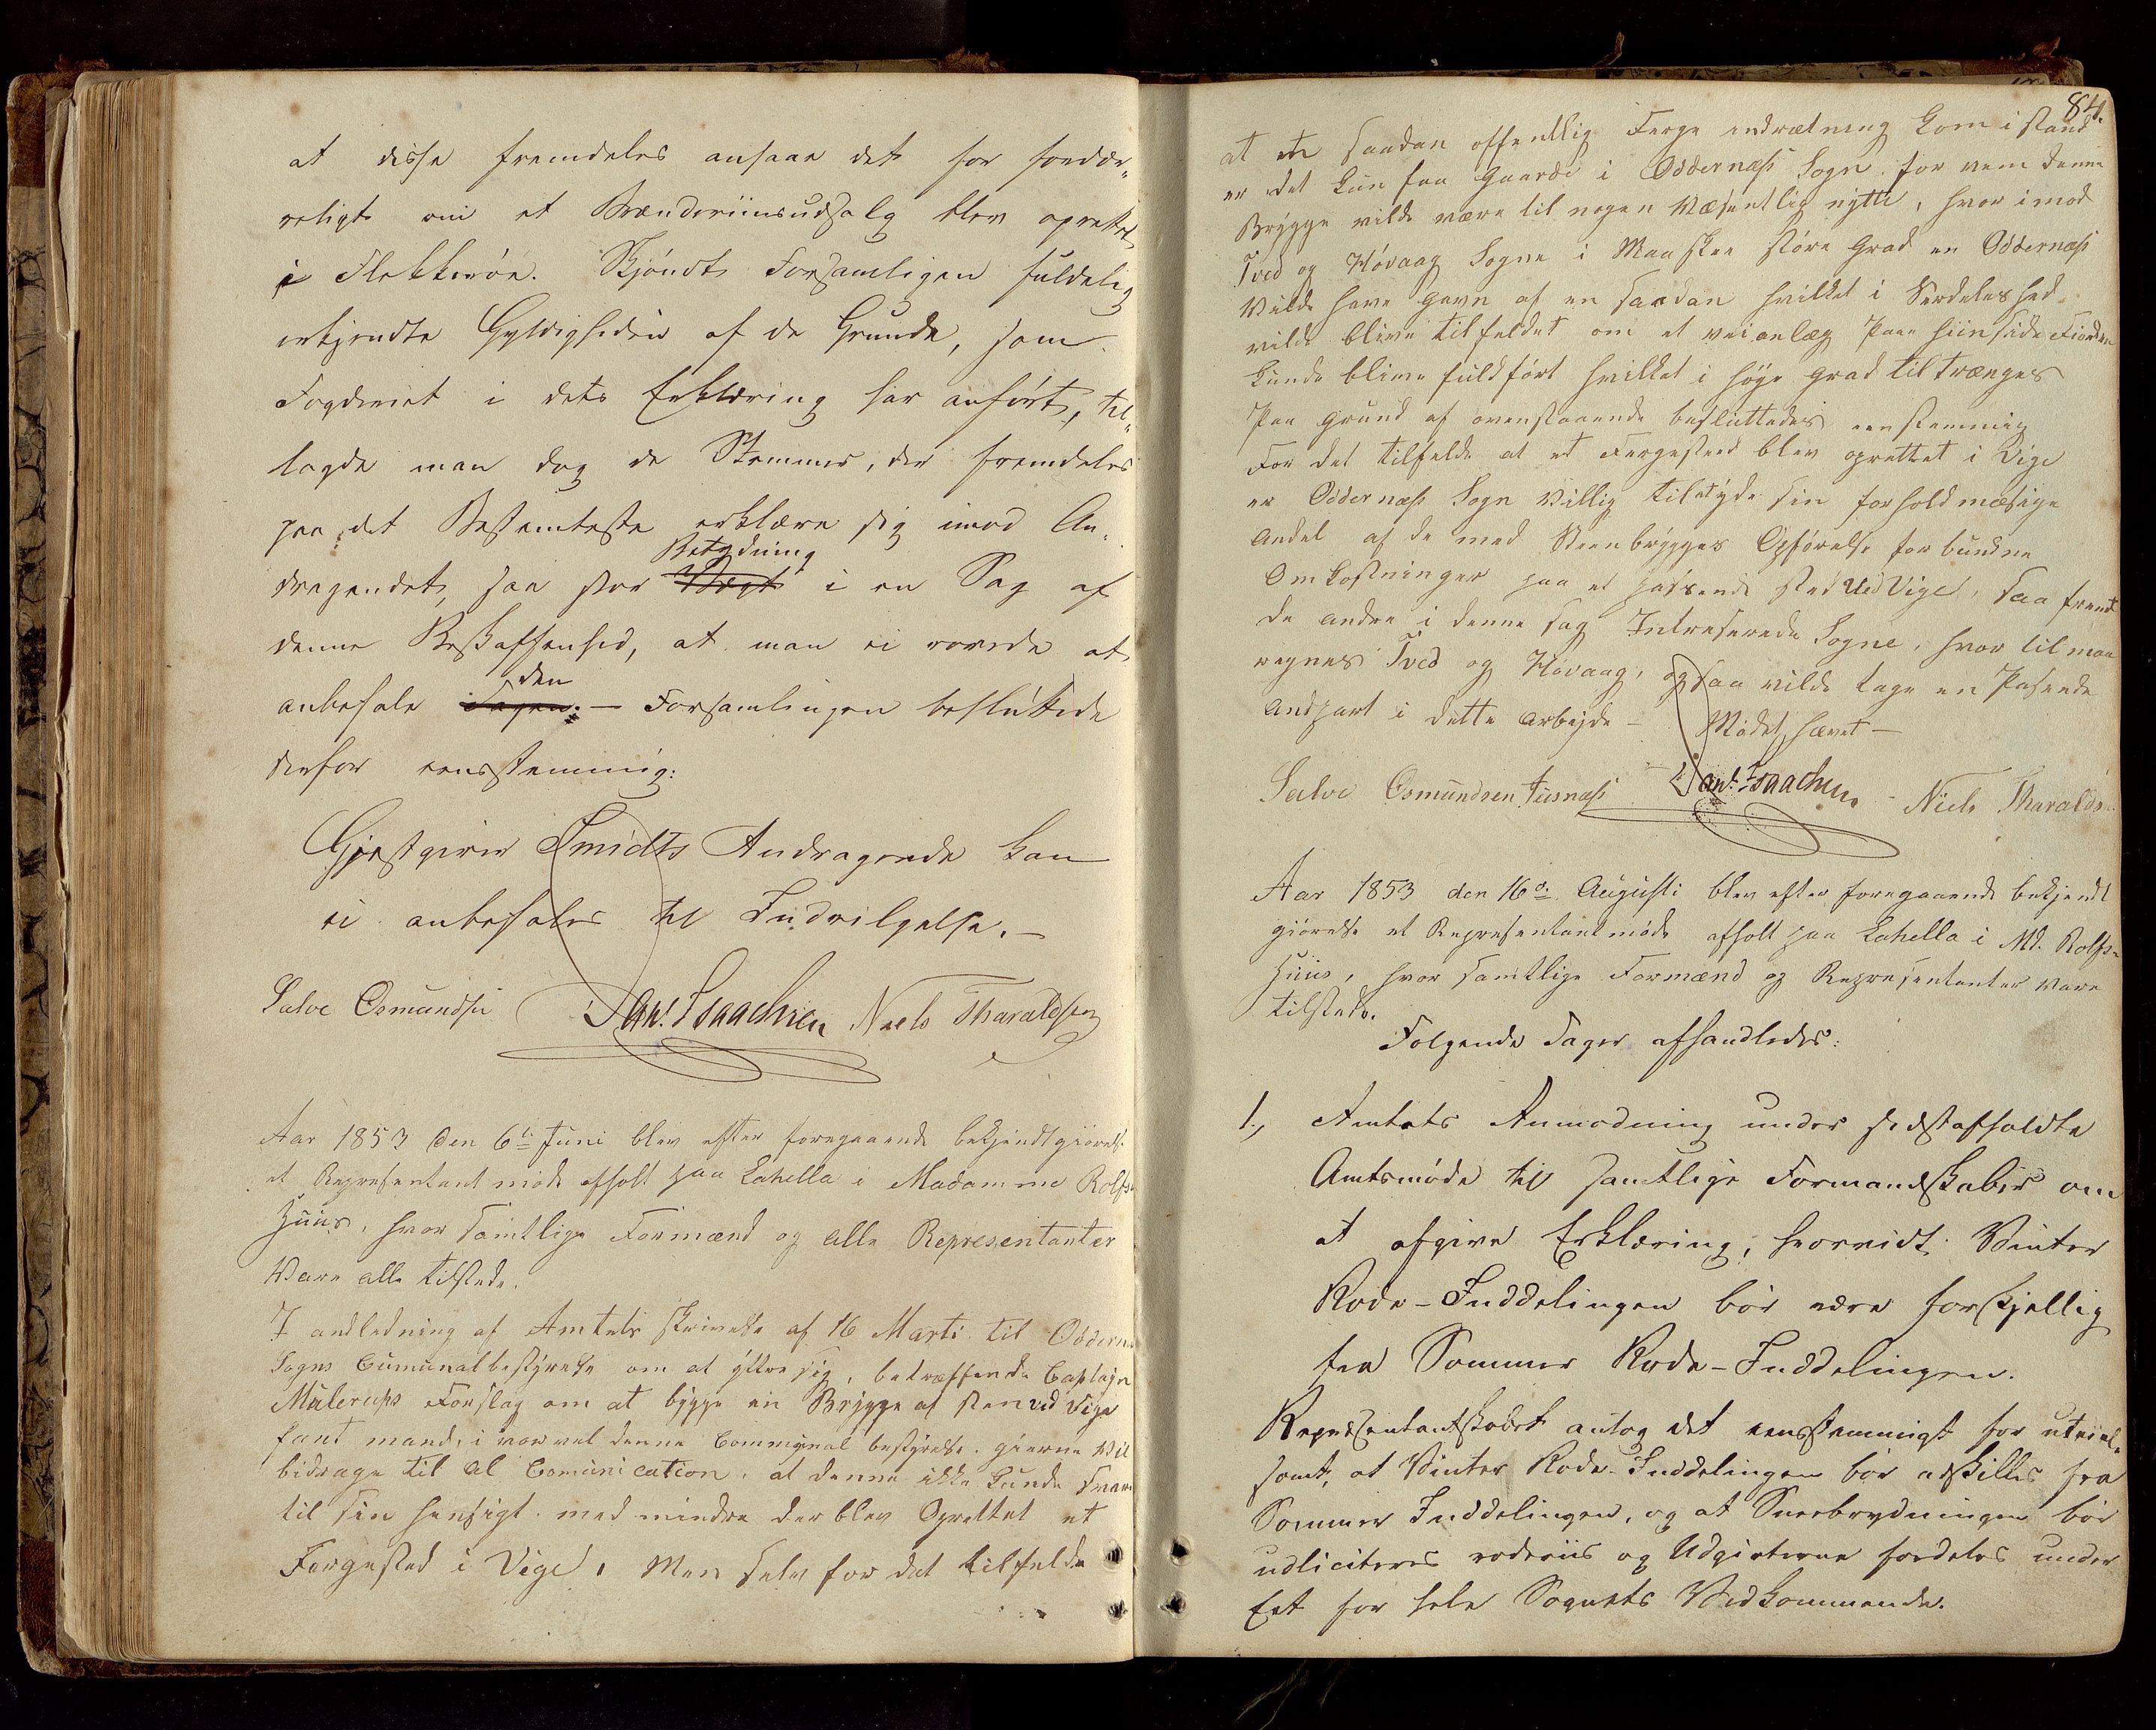 at disse fremdeles ansaae det for fordær-
veligt om et Brændeviinsudsalg blev oprettet
i Flekkerøe. Skjöndt Forsamligen fuldelig
erkjendte Gyldigheden af de Grunde, som
Fogderiet i dets Erklæring har anført, til-
lagde man dog de Stemmer, der fremdeles
paa det Bestemteste erklære sig imod An-
dragendet, saa stor Vægt Betydning i en Sag af
denne Beskaffenhed, at man ei vovede at
anbefale Sagen den. — Forsamlingen besluttede
derfor eensstemmig:
Gjestgiver Smidts Andragende kan
ei anbefales til Indvilgelse. —
Salve Osmundsen Dan. Isaachsen Niels Tharaldsen
Aar 1853 den 6te Juni blev efter foregaaende bekjendtgiörelse
et Representantmöde afholt paa Lahella i Madamme Rolfs
Huus, hvor samtlige Formænd og alle Representanter
Vare alle tilstede.
I andledning af Amtets skrivelse af 16 Marti til Oddernes
Sogns Cumunalbestyrelse om at yttre sig, betræffende Captajn
Mülerups Forslag om at bygge en Brygge af sten ved Vige
fant mand, i vorvel denne Communal bestyrelse gierne vil
bidrage til al Comunication, at denne ikke kunde svare
til sin hensigt med mindre der blev Oprettet et
Fergested i Vige, Men selv for det tilfelde
84.
at en saadan offentlig Ferge indrætning kom i stand
er det kun faa Gaarde i Oddernæss Sogn for vem denne
Brygge vilde være til nogen Væsentlig nytte, hvor imod
Tved og Hövaag Sogne i Maaskee störe Grad en Oddernæss
Vilde have gavn af en saadan hvilket i Serdeleshed
vilde blive tilfeldet om et veianlæg paa hiinside Fiorden
kunde blive fuldfört hvilket i höye grad tiltrænges
Paa grund af ovenstaaende besluttedes eenstemmig
For det tilfelde at et Fergested blev oprettet i Vige
er Oddernæss Sogn Villig tilatyde sin forholdmæsige
Andel af de med Steenbrygges Opförelse forbundne
Omkostninger paa et passende sted ved Vige, saa fremt
de andre i denne sag Intreserede Sogne, hvor til man
regnes Tved og Hövaag, ogsaa vilde tage en Pasende
Andpart i dette Arbejde — Mödet hævet —
Salve Osmundsen Justnæss Dan. Isaachsen Niels Tharalds
Aar 1853 den 16de Augusti blev efter foregaaende bekjendt
giörelse et Representantmöde afholt paa Lahella i Md. Rolfs
Huus, hvor samtlige Formænd og Representanter vare
tilstede.
Folgende Sager afhandledes:
1., Amtets Anmodning under sidstafholdte
Amtsmöde til samtlige Formandskaber om
at afgive Erklæring, hvorvidt Vinter
Rode-Inddelingen bör være forskjellig
fra Sommer Rode-Inddelingen.
Repræsentantskabet antog det eensstemmigt for utvivl-
somt, at Vinter Rode-Inddelingen bör adskilles fra
Sommer Inddelingen, og at Sneebrydningen bör
udliciteres rodeviis og Udgivterne fordeles under
Eet for hele Sognets Vedkommende.